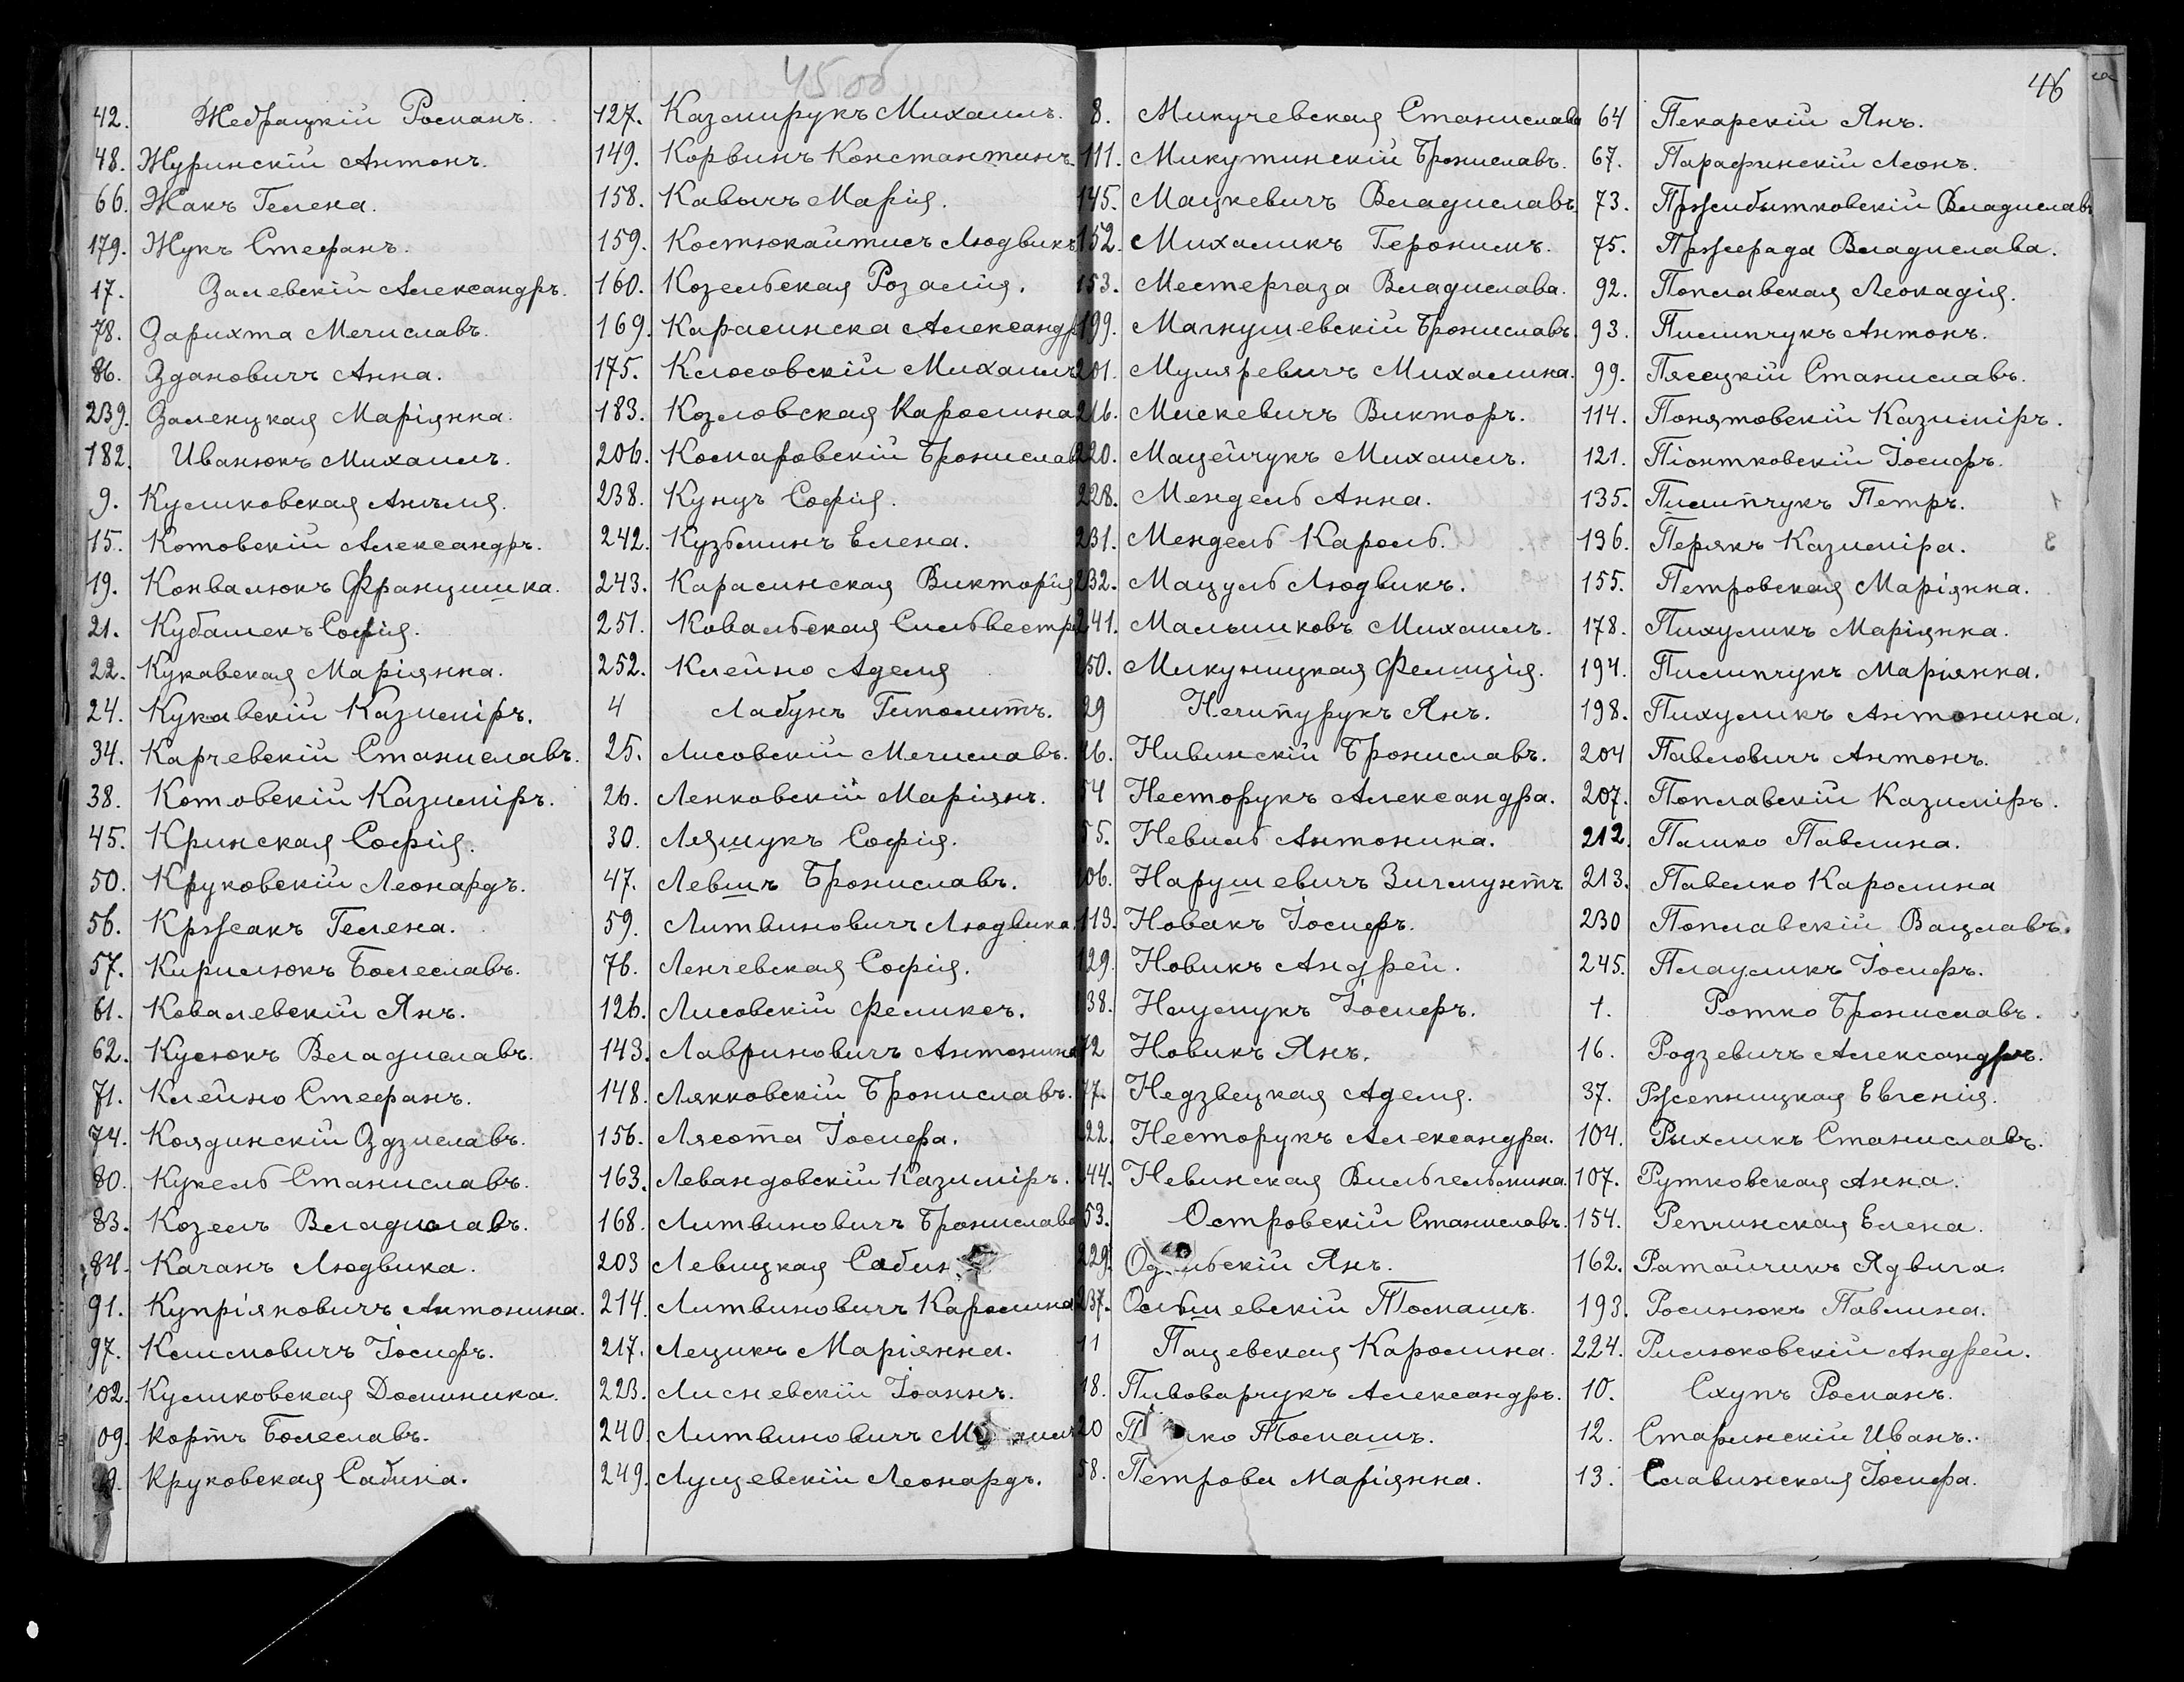 45 об
42. Жебрацкій Романъ.
48. Журинскій Антонъ.
66. Жакъ Гелена.
179. Жукъ Стефанъ.
17. Залевскій Александръ.
78. Зарихта Мечиславъ.
86. Здановичъ Анна.
239. Заленцкая Маріянна.
182. Иванюкъ Михаилъ.
9. Куликовская Анеля.
15. Котовскій Александръ.
19. Конвалюкъ Францишка.
21. Кубашекъ Софія.
22. Кукавская Маріянна.
24. Кукавскій Казиміръ.
34. Карчевскій Станиславъ.
38. Котовскій Казиміръ.
45. Кринская Софія.
50. Круковскій Леонардъ.
56. Кржсакъ Гелена.
57. Кирилюкъ Болеславъ.
61. Ковалевскій Янъ.
62. Кусюкъ Владиславъ.
71. Клейно Стефанъ.
74. Колдинскій Здзиславъ.
80. Кукель Станиславъ.
83. Козелъ Владиславъ.
84. Качанъ Людвика.
91. Купріяновичъ Антонина.
97. Климовичъ Іосифъ.
102. Куликовская Доминика.
09. Кортъ Болеславъ.
Круковская Сабина.
127. Казмирукъ Михаилъ.
149. Корвинъ Константинъ.
158. Кавычъ Марія.
159. Костюкайтисъ Людвикъ
160. Козельская Розалія.
169. Карасинска Александр
175. Клосовскій Михаилъ
183. Козловская Каролина
206. Комаровскій Брониславъ
238. Кунцъ Софія.
242. Кузьминъ Елена.
243. Карасинская Викторія
251. Ковальская Сильвестра
252. Клейно Аделя
4 Лабунъ Гиполитъ.
25. Лисовскій Мечиславъ.
26. Ленковскій Маріянъ.
30. Ляшукъ Софія.
47. Левшъ Брониславъ.
59. Литвиновичъ Людвика.
76. Ленчевская Софія.
126. Лисовскій Феликсъ.
143. Лавриновичъ Антонина
148. Лякковскій Брониславъ.
156. Лясота Іосифа.
163. Левандовскій Казиміръ.
168. Литвиновичъ Брониславъ
203 Левицкая Сабин
214. Литвиновичъ Каролина
217. Лецикъ Маріянна.
223. Лисневскій Іоаннъ.
240. Литвиновичъ
249. Лущевскій Леонардъ.
46
8. Микучевская Станислава
111. Микутинскій Брониславъ.
145. Мацкевичъ Владиславъ
152. Михаликъ Геронимъ.
153. Местергаза Владислава.
199. Магнушевскій Брониславъ.
201. Муляревичъ Михалина.
216. Мискевичъ Викторъ.
220. Мацейчукъ Михаилъ.
228. Мендель Анна.
231. Мендель Кароль.
232. Мацуль Людвикъ.
241. Малышковъ Михаилъ.
250. Микуницкая Фелиція.
29 Нечипурукъ Янъ.
46. Нивинскій Брониславъ.
54 Несторукъ Александра.
55. Невиль Антонина.
106. Нарушевичъ Зигмунтъ
113. Новакъ Іосифъ.
129. Новикъ Андрей.
138. Нашукъ Іосифъ.
172 Новикъ Янъ.
177. Недзвецкая Аделя.
222. Несторукъ Александра.
244. Невинская Вильгельмина.
53. Островскій Станиславъ.
229. Янъ.
237. Ольшевскій Томашъ.
11 Пацевская Каролина.
18. Пивоварчукъ Александръ.
20 Томашъ.
58. Петрова Маріянна.
64 Пекарскій Янъ.
67. Парафинскій Леонъ.
73. Пржибытковскій Владиславъ
75. Пржерада Владислава.
92. Поплавская Леокадія.
93. Пилипчукъ Антонъ.
99. Пясецкій Станиславъ.
114. Понятовскій Казиміръ.
121. Піонтковскій Іосифъ.
135. Пилипчукъ Петръ.
136. Перякъ Казиміра.
155. Петровская Маріянна.
178. Пихуликъ Маріянна.
194. Пилипчукъ Маріянна.
198. Пихуликъ Антонина.
204 Павловичъ Антонъ.
207. Поплавскій Казиміръ.
212. Пашко Павлина.
213. Павелко Каролина
230 Поплавскій Вацлавъ.
245. Плауликъ Іосифъ.
1. Ротко Брониславъ.
16. Родзевичъ Александръ.
37. Ржепницкая Евгенія.
104. Рыхликъ Станиславъ.
107. Рутковская Анна.
154. Репчинская Елена.
162. Ратайчикъ Ядвига.
193. Росинюкъ Павлина.
224. Рилюковскій Андрей.
10. Схупъ Романъ.
12. Старинскій Иванъ.
13. Славинская Іосифа.